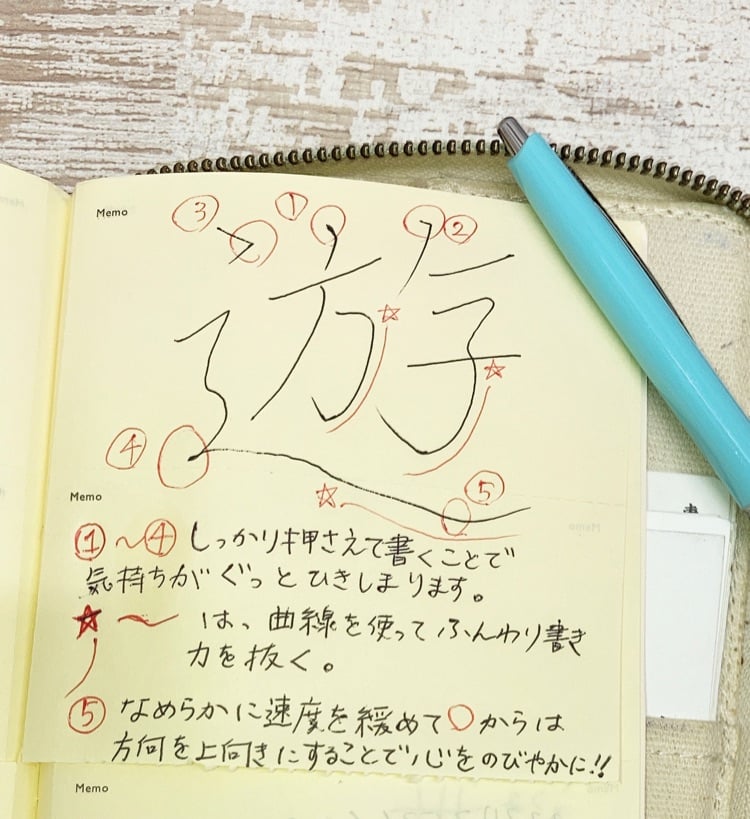 Memo
③ ① ②
遊
④
⑤
Memo
①～④ しっかり押さえて書くことで
気持ちがぐっとひきしまります。
☆〜 は、曲線を使ってふんわり書き
力を抜く。
⑤ なめらかに速度を緩めて○からは
方向を上向きにすることで心をのびやかに!!
Memo